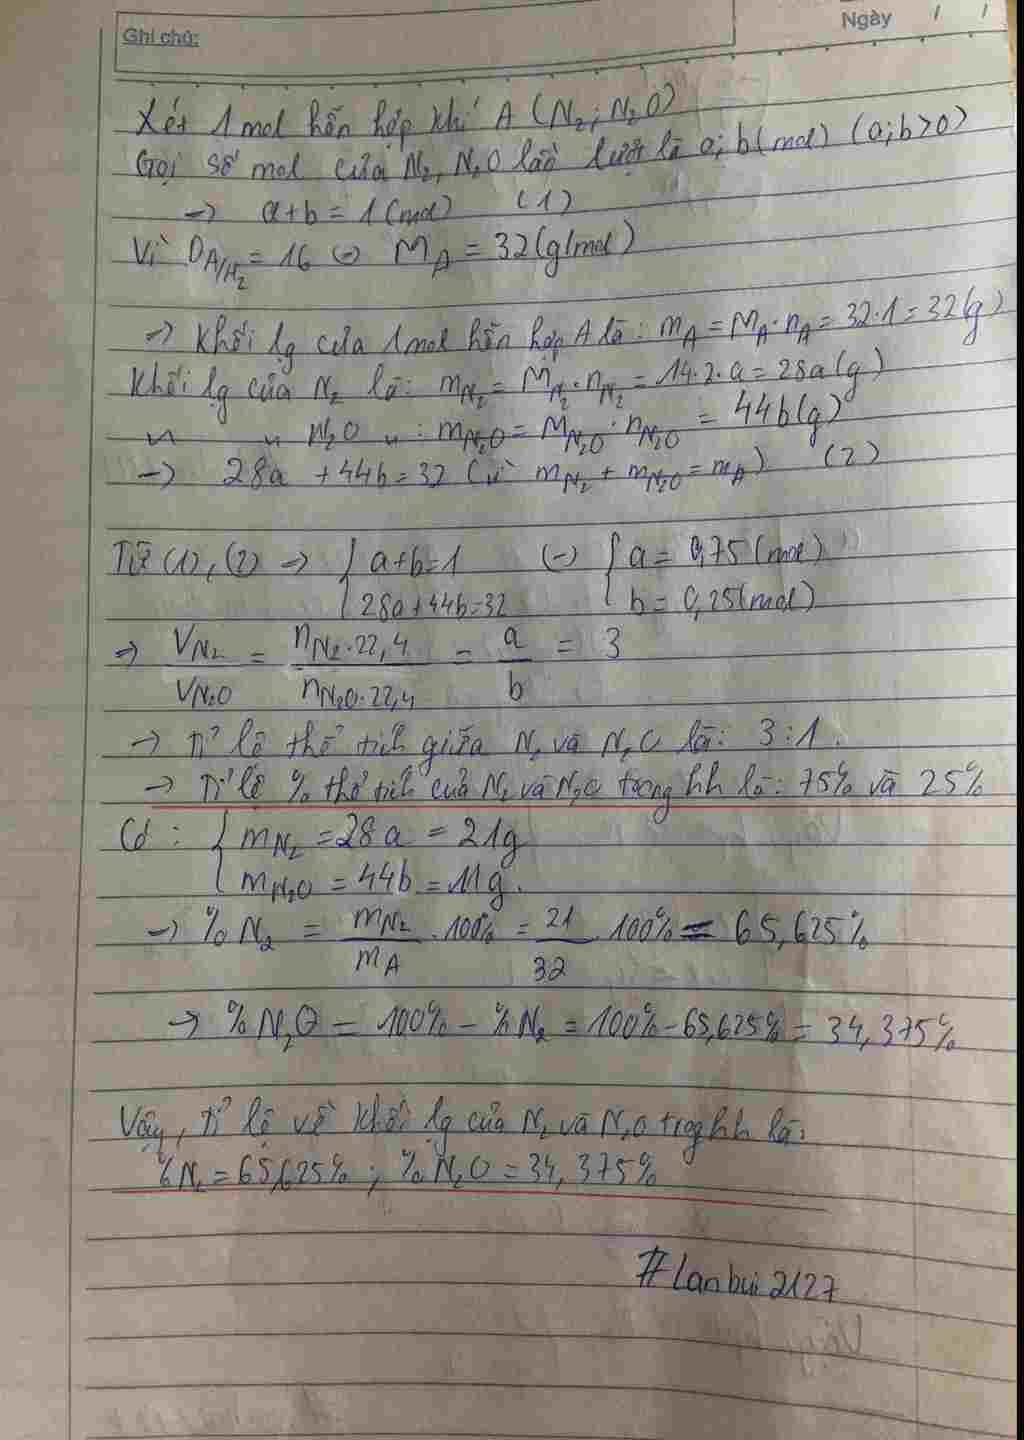 Ghi chú:
Ngày / /
Xét 1 mol hỗn hợp khí A (N₂; N₂O)
Gọi số mol của N₂, N₂O lần lượt là a; b (mol) (a; b > 0)
→ a+b = 1 (mol) (1)
Vì D_A/H₂ = 16 ⇔ M_A = 32 (g/mol)
⇒ Khối lg của 1 mol hỗn hợp A là : m_A = M_A . n_A = 32.1 = 32 (g)
Khối lg của N₂ là : m_N₂ = M_N₂ . n_N₂ = 14.2.a = 28a (g)
〃 〃 N₂O 〃 : m_N₂O = M_N₂O . n_N₂O = 44b (g)
→ 28a + 44b = 32 (vì m_N₂ + m_N₂O = m_A) (2)
Từ (1), (2) → { a+b=1 (-) { a = 0,75 (mol)
28a+44b=32 b = 0,25 (mol)
⇒ V_N₂ / V_N₂O = n_N₂.22,4 / n_N₂O.22,4 = a / b = 3
→ Tỉ lệ thể tích giữa N₂ và N₂O là : 3 : 1.
→ Tỉ lệ % thể tích của N₂ và N₂O trong hh là : 75% và 25%
Có : { m_N₂ = 28a = 21g
m_N₂O = 44b = 11g.
→ % N₂ = m_N₂ / m_A . 100% = 21 / 32 . 100% = 65,625%
→ % N₂O = 100% - % N₂ = 100% - 65,625% = 34,375%
Vậy, tỉ lệ về khối lg của N₂ và N₂O trog hh là :
% N₂ = 65,625% ; % N₂O = 34,375%
#lanbui2127